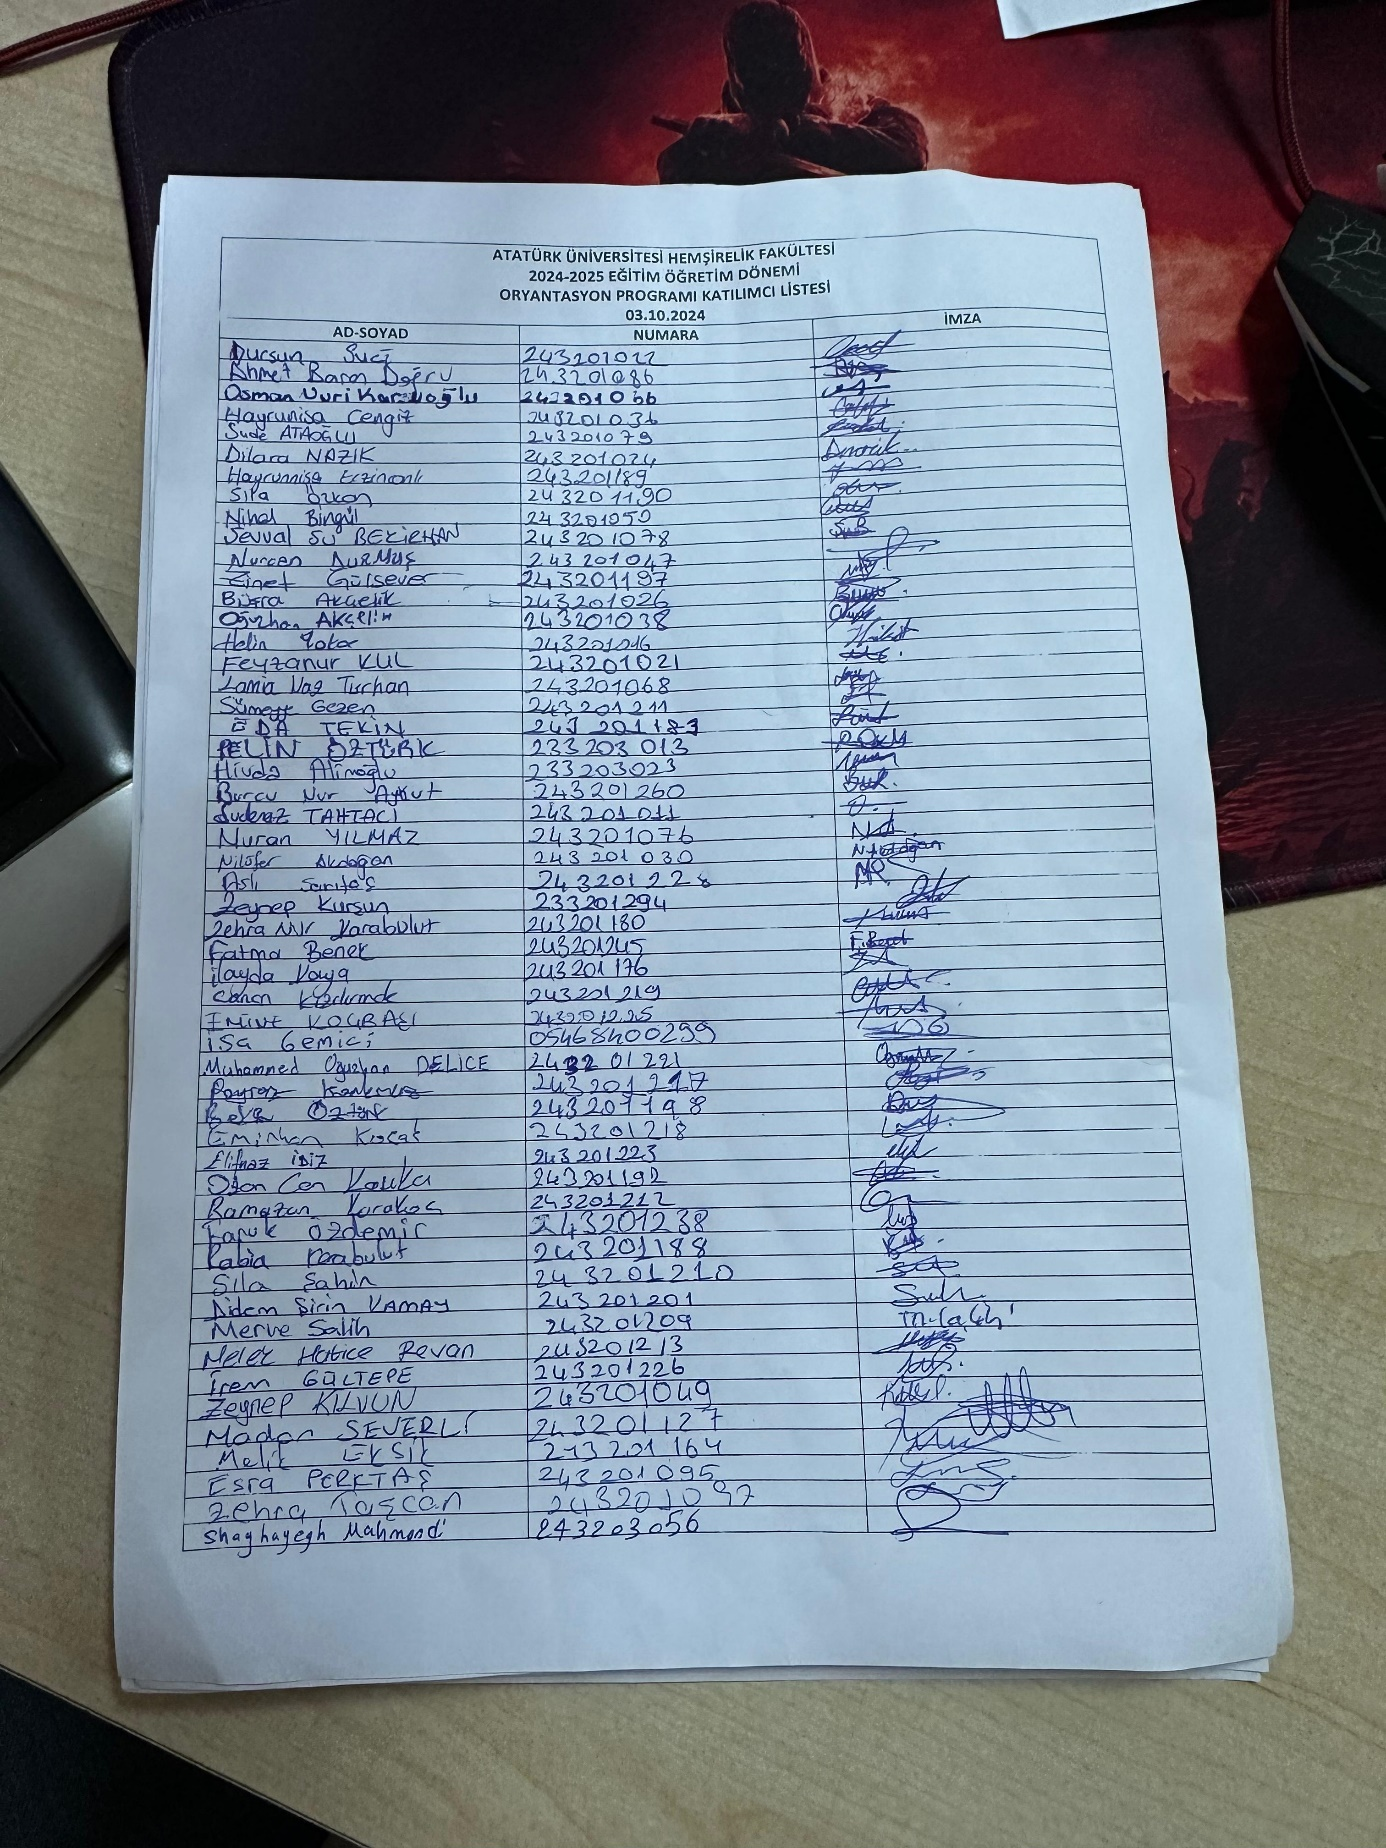 ATATÜRK ÜNİVERSİTESİ HEMŞİRELİK FAKÜLTESİ
2024-2025 EĞİTİM ÖĞRETİM DÖNEMİ
ORYANTASYON PROGRAMI KATILIMCI LİSTESİ
03.10.2024
AD-SOYAD NUMARA İMZA
Dursun Suçi 243201022
Ahmet Baran Doğru 243201086
Osman Nuri 243201066
Hayrunisa Cengiz 243201036
Sude ATAOĞLU 243201079
Dilara NAZİK 243201024
Hayrunnisa Erzincanlı 243201189
Sıla Özkan 243201190
Nihal Bingül 243201050
Şevval Su BEKİRHAN 243201078
Nurcan DURMUŞ 243201047
Zinet Gülsever 243201197
Büşra Akçelik 243201026
Oğuzhan AKÇELİK 243201038
Helin 243201046
Feyzanur KUL 243201021
Lamia Naz Turhan 243201068
Sümeyye Gezen 243201211
EDA TEKİN 243201183
PELİN ÖZTÜRK 233203013
Hivda Alinoğlu 233203023
Burcu Nur Aykut 243201260
Sudenaz TAHTACI 243201011
Nuran YILMAZ 243201076
Nilüfer Akdoğan 243201030 N.Akdoğan
Aslı Sarıtaş 243201228
Zeynep Kurşun 233201294
Zehra Nur Karabulut 243201180
Fatma Benek 243201245 F.Benek
İlayda Kaya 243201176
Canan 243201219
243201225
İsa Gemici 05468400299
Muhammed Oğuzhan DELİCE 243201221
243201217
Öztürk 243201198
Eminhan Koçak 243201218
Elifnaz İDİZ 243201223
Ozan Can 243201192
Ramazan Karakoç 243201212
Faruk Özdemir 243201238
Rabia Karabulut 243201188
Sıla Şahin 243201210
Didem Şirin KAMAY 243201201
Merve Salih 243201209
Melek Hatice Revan 243201213
İrem GÜLTEPE 243201226
Zeynep KILVUN 243201049
Madan SEVERLİ 243201127
Melik EKŞİ 243201164
Esra PERKTAŞ 243201095
Zehra Taşcan 243201097
Shaghayegh Mahmoodi 243203056